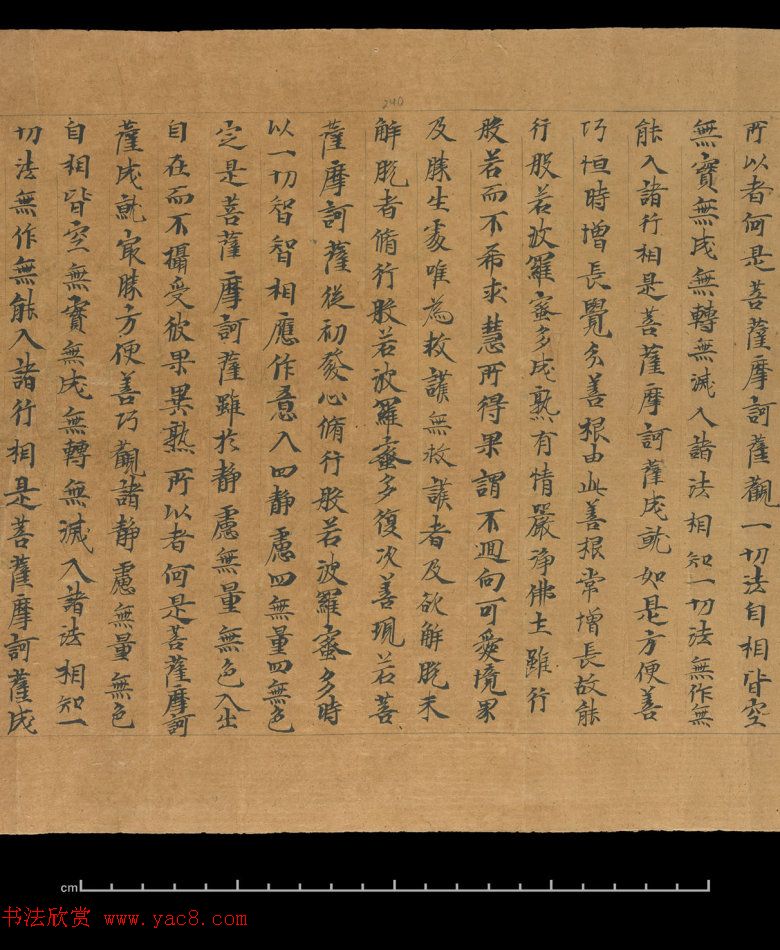 240
所以者何是菩薩摩訶薩觀一切法自相皆空
無實無成無轉無滅入諸法相知一切法無作無
能入諸行相是菩薩摩訶薩成就如是方便善
巧恒時增長覺分善根由此善根常增長故能
行般若波羅蜜多成熟有情嚴淨佛土雖行
般若而不希求慧所得果謂不迴向可愛境界
及勝生處唯為救護無救護者及欲解脫未
解脫者脩行般若波羅蜜多復次善現若菩
薩摩訶薩從初發心脩行般若波羅蜜多時
以一切智智相應作意入四靜慮四無量四無色
定是菩薩摩訶薩雖於靜慮無量無色入出
自在而不攝受彼果異熟所以者何是菩薩摩訶
薩成就最勝方便善巧觀諸靜慮無量無色
自相皆空無實無成無轉無滅入諸法相知一
切法無作無能入諸行相是菩薩摩訶薩成
cm
书法欣赏 www.yac8.com